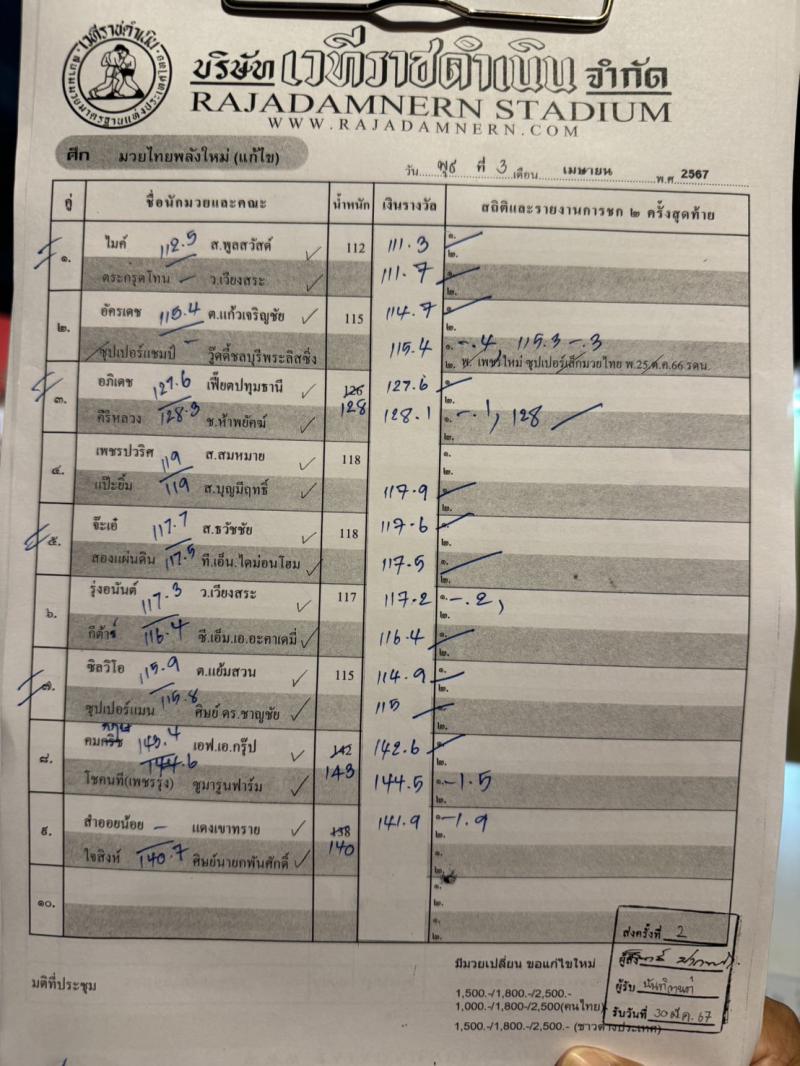 เวทีราชดำเนิน
บริษัท เวทีราชดำเนิน จำกัด
RAJADAMNERN STADIUM
WWW.RAJADAMNERN.COM
ศึก มวยไทยพลังใหม่ (แก้ไข)
วัน พุธ ที่ 3 เดือน เมษายน พ.ศ 2567
คู่ ชื่อนักมวยและคณะ น้ำหนัก เงินรางวัล สถิติและรายงานการชก ๒ ครั้งสุดท้าย
๑. ไมค์ 112.5 ส.พูลสวัสดิ์ 112 111.3 ๑.
๒.
ตระกรุดโทน – ว.เวียงสระ 111.7 ๑.
๒.
๒. อัครเดช 115.4 ต.แก้วเจริญชัย 115 114.7 ๑.
๒.
ซุปเปอร์แชมป์ – วู๊ดดี้ชลบุรีพระลิสซิ่ง 115.4 ๑. -.4, 115.3 -.3
๒. พ. เพชรใหม่ ซุปเปอร์เล็กมวยไทย พ.25,ต.ค.66 รดน.
๓. อภิเดช 127.6 เฟี๊ยตปทุมธานี 126 127.6 ๑.
128 ๒.
คีรีหลวง 128.3 ช.ห้าพยัคฆ์ 128.1 ๑. -.1, 128
๒.
๔. เพชรปวริศ 119 ส.สมหมาย 118 ๑.
๒.
แป๊ะยิ้ม 119 ส.บุญมีฤทธิ์ 117.9 ๑.
๒.
๕. จ๊ะเอ๋ 117.7 ส.ธวัชชัย 118 117.6 ๑.
๒.
สองแผ่นดิน 117.5 ที.เอ็น.ไดม่อนโฮม 117.5 ๑.
๒.
๖. รุ่งอนันต์ 117.3 ว.เวียงสระ 117 117.2 ๑. -.2,
๒.
กีต้าร์ 116.4 ซี.เอ็ม.เอ.อะคาเดมี่ 116.4 ๑.
๒.
๗. ซิลวิโอ 115.9 ต.แย้มสวน 115 114.9 ๑.
๒.
ซุปเปอร์แมน 115.8 ศิษย์ ดร.ชาญชัย 115 ๑.
๒.
๘. คมกริช 143.4 เอฟ.เอ.กรุ๊ป 142 142.6 ๑.
143 ๒.
โชคนที(เพชรรุ่ง) 144.6 ซูมารูนฟาร์ม 144.5 ๑. -1.5
๒.
๙. สำออยน้อย – แดงเขาทราย 138 141.9 ๑. -1.9
140 ๒.
ใจสิงห์ 140.7 ศิษย์นายกพันศักดิ์ ๑.
๒.
๑๐. ๑.
๒.
๑.
๒.
มติที่ประชุม
มีมวยเปลี่ยน ขอแก้ไขใหม่
1,500.-/1,800.-/2,500.-
1,000.-/1,800-/2,500(คนไทย)
1,500.-/1,800.-/2,500.- (ชาวต่างประเทศ)
ส่งครั้งที่ 2
ผู้ส่ง
ผู้รับ
รับวันที่ 30 มี.ค. 67